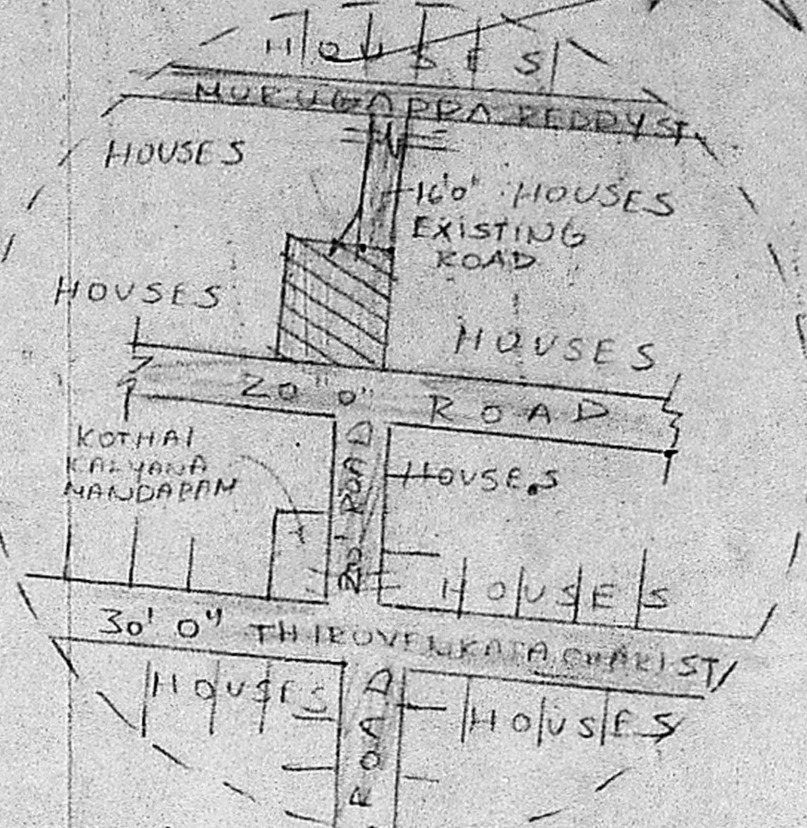 HOUSES
MURUGAPPA REDDY ST.
HOUSES
16'0" HOUSES
EXISTING
ROAD
HOUSES
HOUSES
20'0" ROAD
KOTHAI
KALYANA
MANDAPAM
20' ROAD
HOUSES
HOUSES
30' 0" THIROVENKATA CHARI ST
HOUSES
ROAD
HOUSES